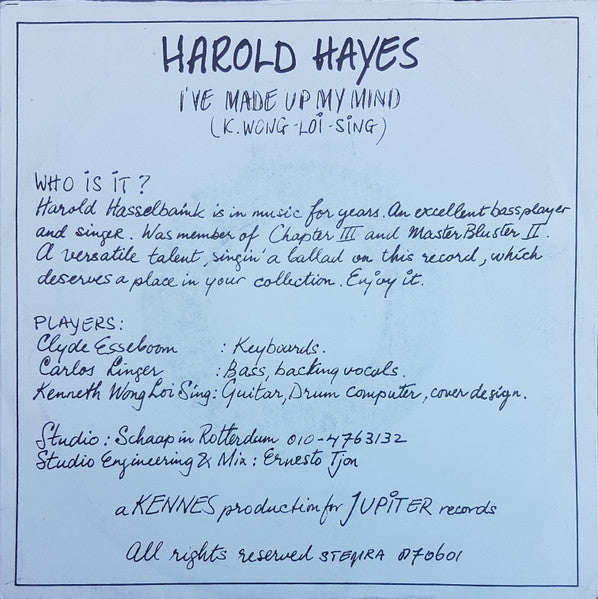 HAROLD HAYES
I'VE MADE UP MY MIND
(K. WONG-LOI-SING)
WHO IS IT?
Harold Hasselbaink is in music for years. An excellent bassplayer
and singer. Was member of Chapter III and Master Bluster II.
A versatile talent, singin' a ballad on this record, which
deserves a place in your collection. Enjoy it.
PLAYERS:
Clyde Esseboom : Keyboards.
Carlos Linger : Bass, backing vocals.
Kenneth Wong Loi Sing: Guitar, Drum computer, cover design.
Studio: Schaap in Rotterdam 010-4763132
Studio Engineering & Mix: Ernesto Tjon
a KENNES production for JUPITER records
All rights reserved STEMRA 870601